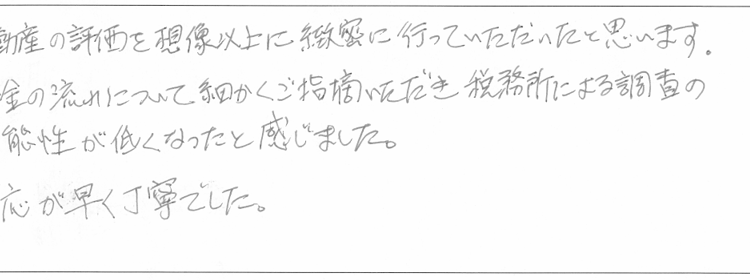 動産の評価を想像以上に緻密に行っていただいたと思います。
金の流れについて細かくご指摘いただき税務所による調査の
能性が低くなったと感じました。
応が早く丁寧でした。